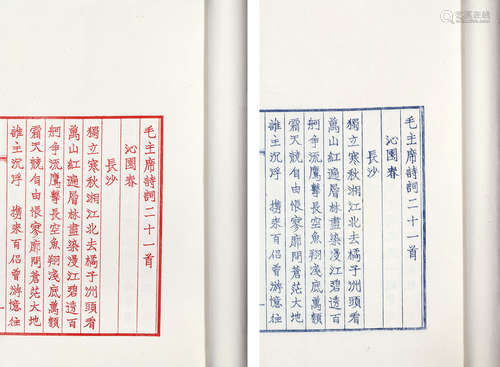 毛主席詩詞二十一首
沁園春
長沙
獨立寒秋湘江北去橘子洲頭看
萬山紅遍層林盡染漫江碧透百
舸争流鷹擊長空魚翔淺底萬類
霜天競自由悵寥廓問蒼茫大地
誰主沉浮 携來百侣曾游憶往
毛主席詩詞二十一首
沁園春
長沙
獨立寒秋湘江北去橘子洲頭看
萬山紅遍層林盡染漫江碧透百
舸争流鷹擊長空魚翔淺底萬類
霜天競自由悵寥廓問蒼茫大地
誰主沉浮 携來百侣曾游憶往